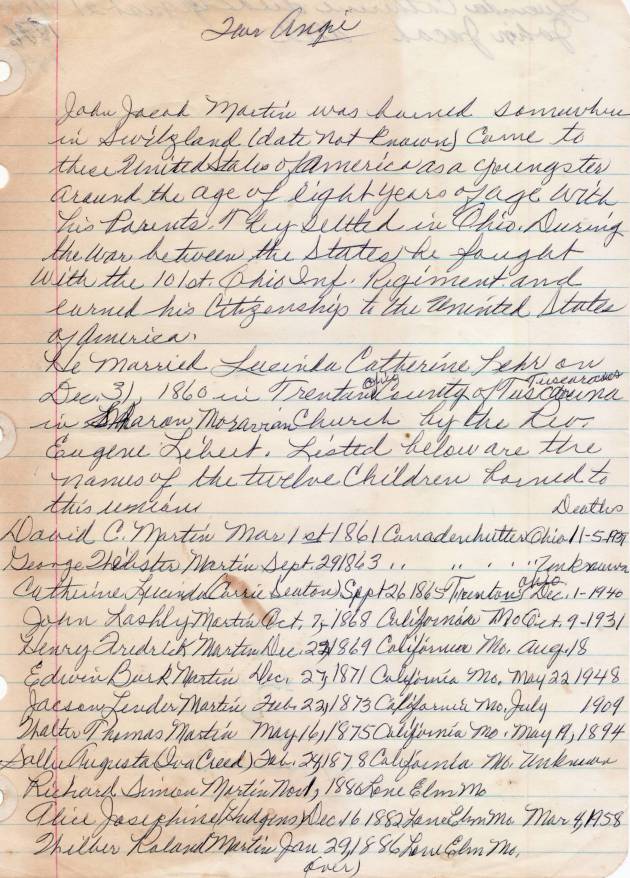 Dear Angie
John Jacob Martin was borned somewhere
in Switzland (date not known) Came to
these United States of America as a youngster
around the age of eight years of age with
his Parents. They settled in Ohio. During
the war between the States he fought
with the 101st. Ohio Inf. Regiment and
earned his Citizenship to the Uninted States
of America.
He Married Lucinda Catherine Behr on
Ohio Tuscarawas
Dec. 31, 1860 in Trentan County of
in Sharon Moravian Church by the Rev.
Eugene Libert. Listed below are the
names of the twelve Children borned to
this union Deaths
David C. Martin Mar 1st 1861 Canadenhutten Ohio 11-5-
George Webster Martin Sept. 29 1863 " " " " Unknown
Catherine Lucinda (Carrie Seaton) Sept 26 1865 Trenton Ohio Dec. 1-1940
John Lashly Martin Oct. 7, 1868 California Mo Oct. 9-1931
Henry Fredrick Martin Dec. 1869 California Mo. Aug. 18
Edwin Burk Martin Dec. 27, 1871 California Mo. May 22 1948
Jacson Lender Martin Feb. 22, 1873 California Mo. July 1909
Walter Thomas Martin May 16, 1875 California Mo. May 19, 1894
Sally Augusta (Iva Creed) Feb. 24 1878 California Mo. Unknown
Richard Simon Martin Nov. 1880 Lone Elm Mo
Alice Josephine (Hudgens) Dec 16 1882 Lone Elm Mo Mar 4, 1958
Wilber Roland Martin Jan 29, 1886 Lone Elm Mo.
(over)